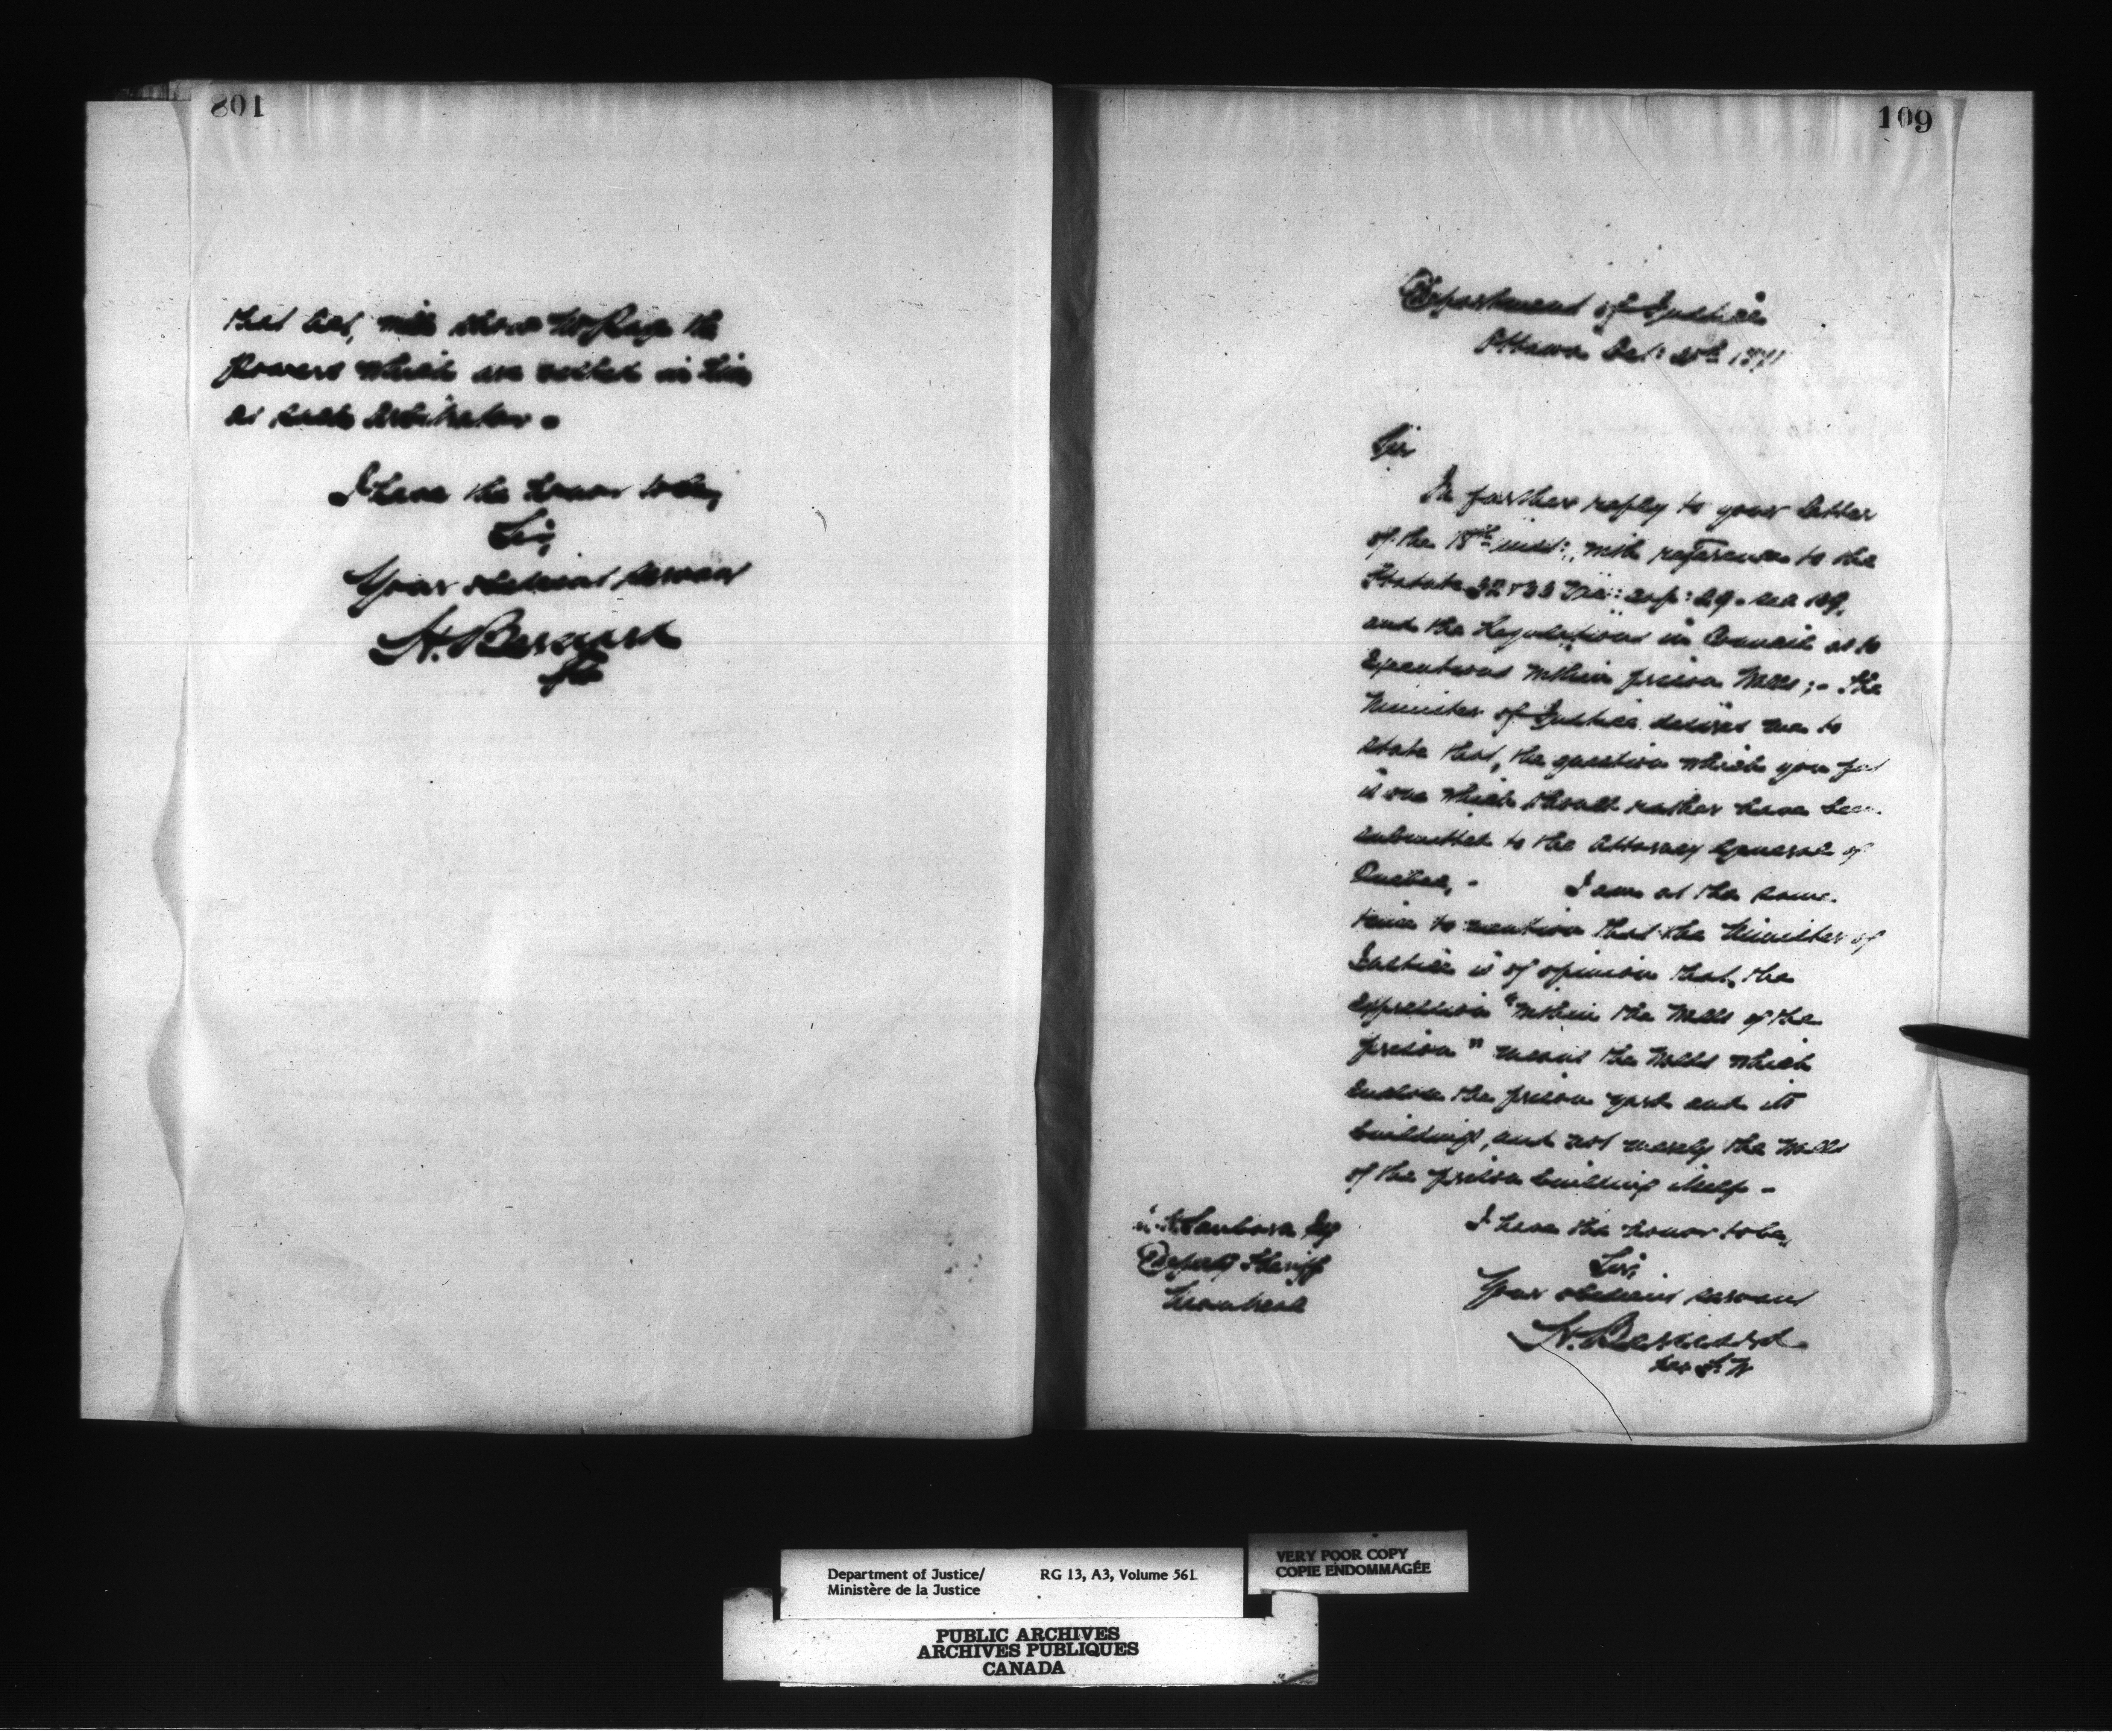 108
that Act, will show Mr Page the
powers which are vested in him
as such Arbitrator.
I have the honor to be,
Sir,
Your obedient servant
H. Bernard
109
Department of Justice
Ottawa Oct: 1871
Sir
In further reply to your letter
of the 18th inst:, with reference to the
Statute 32 & 33 Vic: cap: 29. sec 109,
and the Regulations in Council as to
Executions within prison Walls; - The
Minister of Justice desires me to
state that, the question which you put
is one which should rather have been
submitted to the Attorney General of
Quebec, - I am at the same
time to mention that the Minister of
Justice is of opinion that, the
expression "within the Walls of the
prison" means the Walls which
enclose the prison yard and its
buildings, and not merely the Walls
of the prison building itself -
I have the honor to be,
Sir,
Your obedient servant
H. Bernard
Sanborn Esq
Deputy Sheriff
Montreal
Department of Justice/
Ministère de la Justice
RG 13, A3, Volume 561
VERY POOR COPY
COPIE ENDOMMAGÉE
PUBLIC ARCHIVES
ARCHIVES PUBLIQUES
CANADA